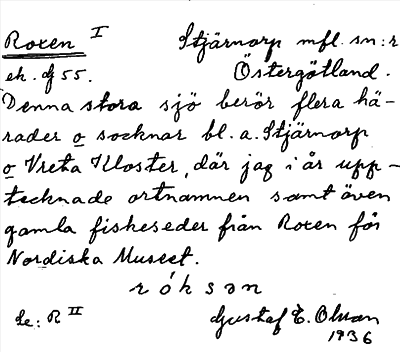 Roxen I Stjärnorp mfl. sn:r
ek. bl 55. Östergötland.
Denna stora sjö berör flera hä-
rader o socknar bl. a. Stjärnorp
o Vreta Kloster, där jag i år upp-
tecknade ortnamnen samt även
gamla fiskeseder från Roxen för
Nordiska Museet.
r ó k s ə n
Se: R II Gustaf E. Olsson
1936